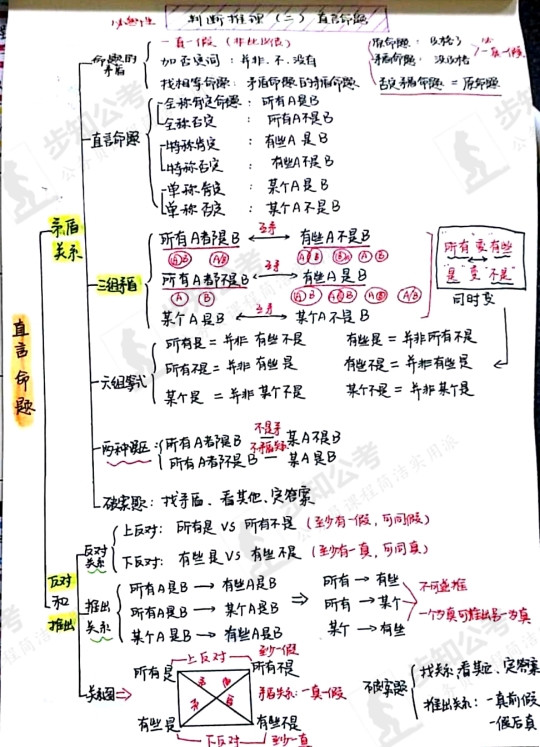 判断推理（二）直言命题
直言命题
矛盾关系
命题的矛盾
一真一假（非此即彼）
加否定词：并非、不、没有
找相等命题：矛盾命题的矛盾命题
原命题：及格
矛盾命题：没及格
一真一假
否定矛盾命题 = 原命题
直言命题
全称肯定命题：所有A是B
全称否定：所有A不是B
特称肯定：有些A是B
特称否定：有些A不是B
单称肯定：某个A是B
单称否定：某个A不是B
三组矛盾
所有A都是B ↔ 有些A不是B
互矛
所有A都不是B ↔ 有些A是B
互矛
某个A是B ↔ 某个A不是B
互矛
"所有"变"有些"
"是"变"不是"
同时变
六组等式
所有是 = 并非 有些不是 有些是 = 并非所有不是
所有不是 = 并非 有些是 有些不是 = 并非有些是
某个是 = 并非 某个不是 某个不是 = 并非 某个是
两种误区：
所有A都是B — 某A不是B
不是矛
不矛盾关系
所有A都不是B — 某A是B
破案题：找矛盾、看其他、定答案
反对和推出
反对关系
上反对：所有是 VS 所有不是（至少有一假，可同假）
下反对：有些是 VS 有些不是（至少有一真，可同真）
推出关系
所有A是B → 有些A是B
所有A是B → 某个A是B
某个A是B → 有些A是B
⇒
所有 → 有些
所有 → 某个
某个 → 有些
不可逆推
一个为真可推出另一为真
关系图⇒
所有是 上反对 至少一假 所有不是
矛盾
矛盾关系：一真一假
有些是 下反对 至少一真 有些不是
破案题
找关系、看其他、定答案
推出关系：一真前假
一假后真
步知公考
步知公考
步知公考